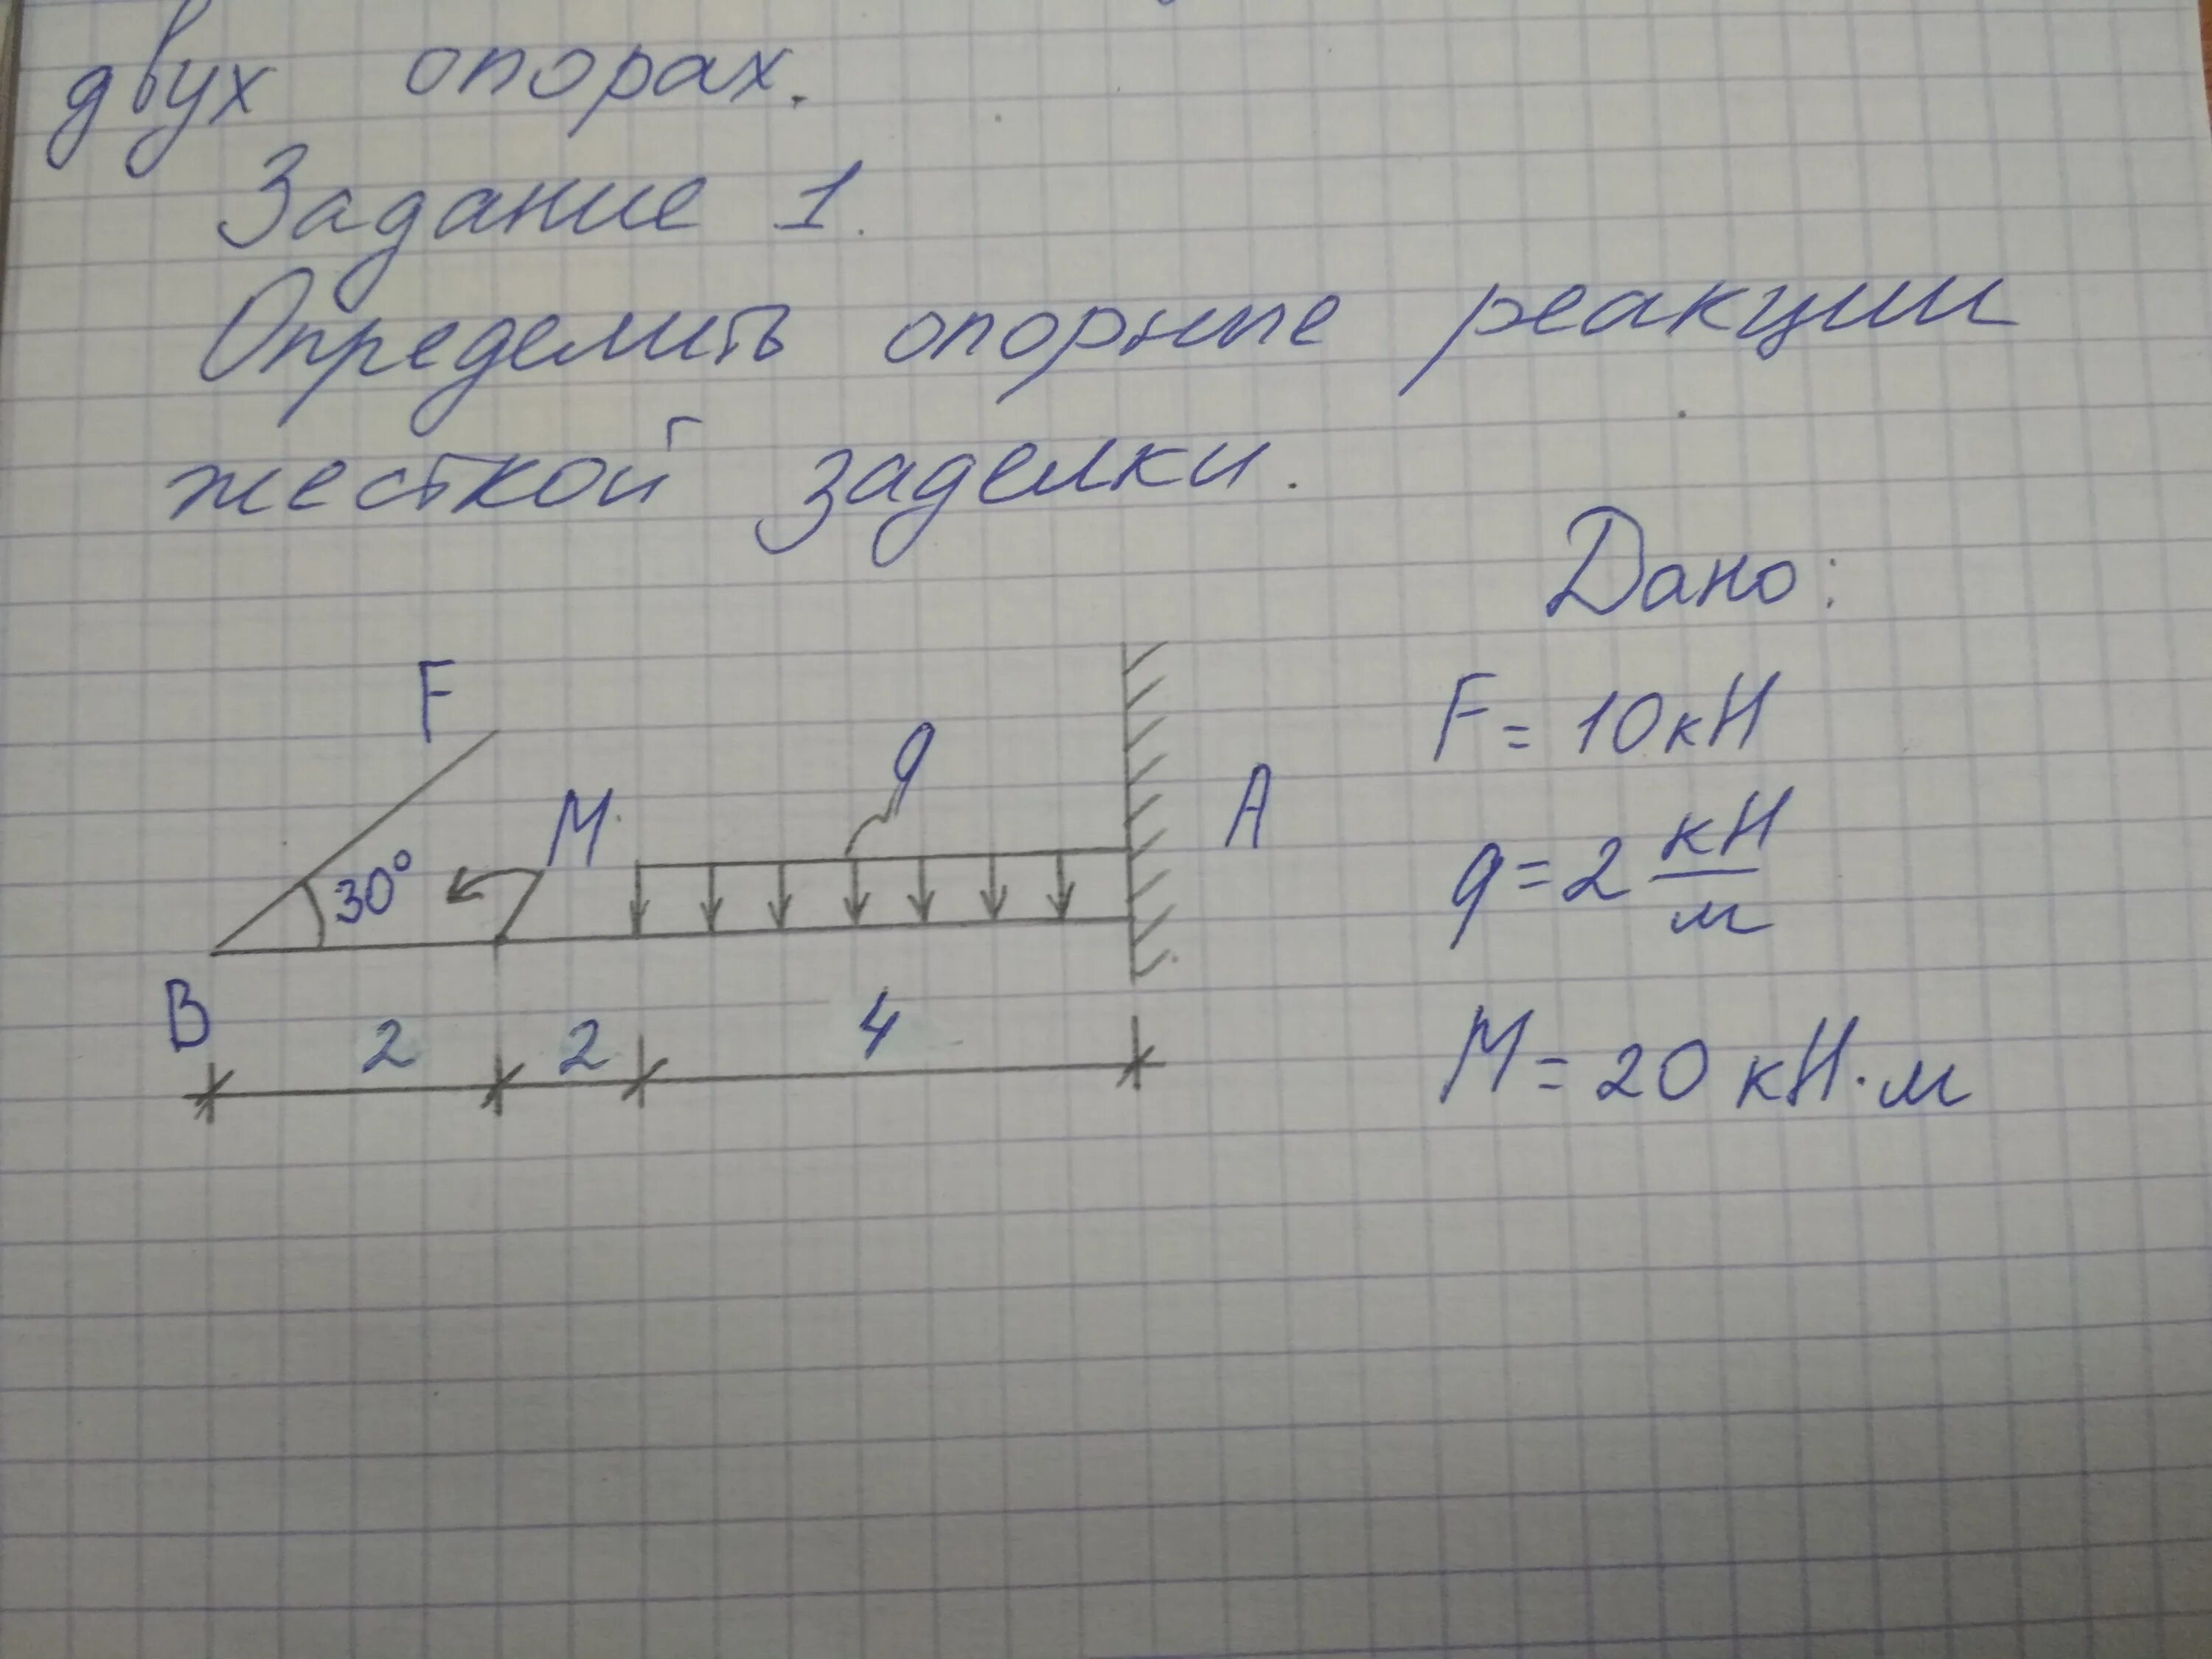 двух опорах.
Задание 1.
Определить опорные реакции
жесткой заделки.
Дано:
F
F = 10 кН
q
M
A
30°
q = 2 кН/м
B
2 2 4
M = 20 кН·м